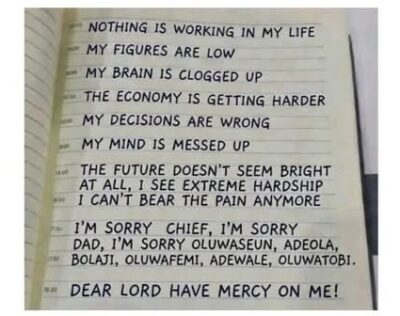 NOTHING IS WORKING IN MY LIFE
MY FIGURES ARE LOW
MY BRAIN IS CLOGGED UP
THE ECONOMY IS GETTING HARDER
MY DECISIONS ARE WRONG
MY MIND IS MESSED UP
THE FUTURE DOESN'T SEEM BRIGHT
AT ALL, I SEE EXTREME HARDSHIP
I CAN'T BEAR THE PAIN ANYMORE
I'M SORRY CHIEF, I'M SORRY
DAD, I'M SORRY OLUWASEUN, ADEOLA,
BOLAJI, OLUWAFEMI, ADEWALE, OLUWATOBI.
DEAR LORD HAVE MERCY ON ME!